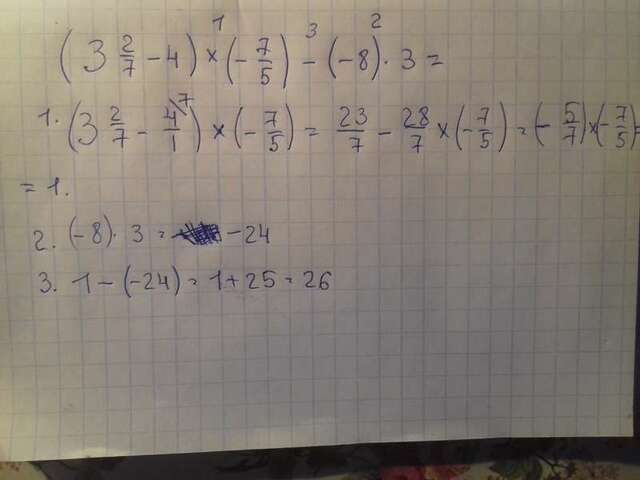 (3 2/7 - 4) 1 × (- 7/5) 3 - (-8) 2 · 3 =
1. (3 2/7 - 4/1 /7) × (- 7/5) = 23/7 - 28/7 × (- 7/5) = (- 5/7) × (- 7/5) =
= 1.
2. (-8) · 3 = -24
3. 1 - (-24) = 1 + 25 = 26